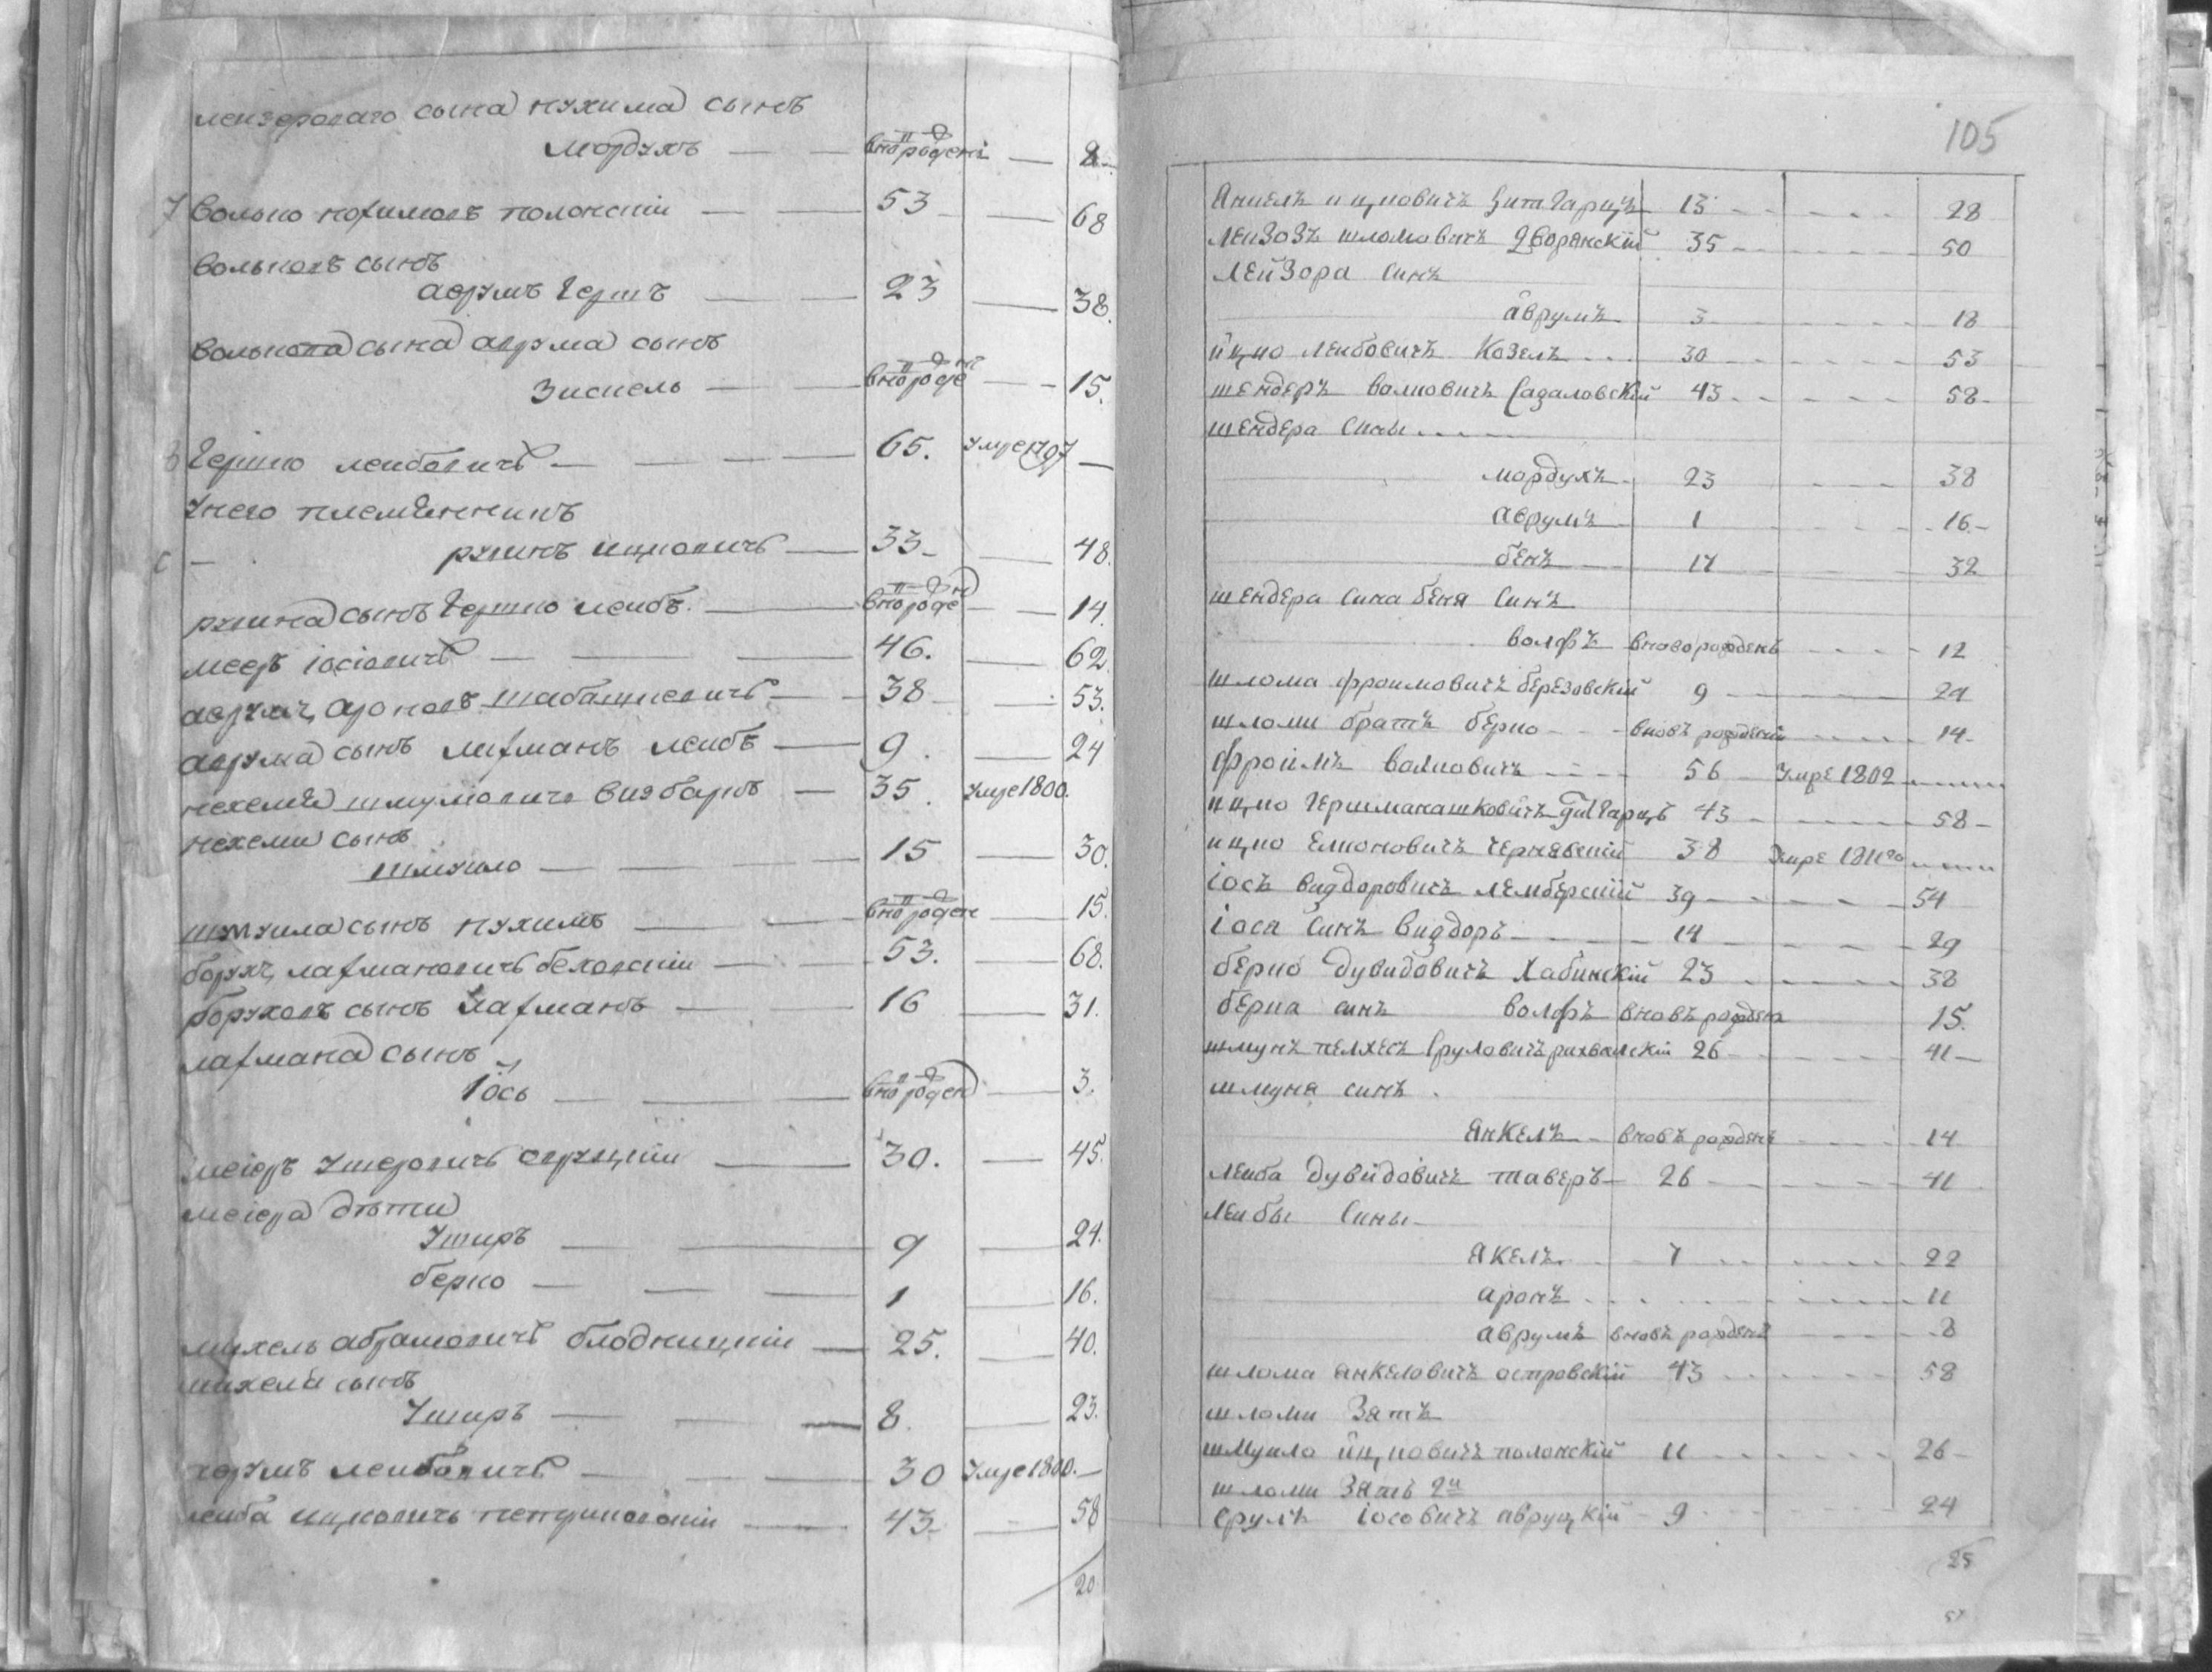 лейзероваго сына нухима сынъ
мордухъ — — внов рожден — 8
7 Волько нофимовъ полонскій — — 53 — 68
Вольковъ сынъ
аврумъ Гершъ — — 23 — 38.
Волькова сына аврума сынъ
Зискель — — внов рожде — 15.
Гершко лейбовичъ — — — 65. умре 1797 —
У него племянникъ
рувинъ ицковичъ — 33 — 48.
рувина сынъ Гершко лейбъ — внов рожде — 14.
мееръ іосіовичъ — — — 46. — 62
аврумъ ароновъ шабашкевичъ — 38 — 53.
аврума сынъ лифманъ лейбъ — 9. — 24
нехемия шмулиовичъ — 35. умре 1800.
нехеми сынъ
шмуило — — — 15 — 30.
шмуила сынъ нухимъ — — внов рожден — 15.
борухъ лафмановичъ — — 53. — 68.
боруховъ сынъ лафманъ — — 16 — 31.
лафмана сынъ
Іось — — — внов рожден — 3.
меіоръ ушеровичъ — 30. — 45.
меіера дѣти
Уширъ — — 9 — 24.
берко — — — 1 — 16.
михель абрамовичъ блодницкій — 25. — 40.
михеля сынъ
Уширъ — — — 8. — 23.
аврумъ лейбовичъ — — 30 умре 1800. —
лейба ицковичъ — 43. — 58
20
105
Янкель ицковичъ 13 - - - - - 28
Лейзоръ шломовичъ Дворянскій 35 - - - - 50
Лейзора синъ
аврумъ 3 - - - - 18
ицко Лейбовичъ Козелъ . . . 30 - - - - 53
шендеръ волковичъ Садаловскій 43 - - - - 58 -
шендера сины . . . .
мордухъ 23 - - - 38
аврумъ 1 - - - 16. -
бенъ 17 - - - 32
шендера сина беня синъ
волфъ вново рожденъ - - - 12
шлома фроимовичъ березовскій 9 - - - - 24
шломи братъ берко - - - вновь рожденъ - - - - 14 -
фроимъ волковичъ - - - 56 - умре 1802 - - - -
ицко 43 - - - - 58 -
ицко Чернявский 38 умре 1811го - - -
іось видоровичъ лемберский 39 - - - - - 54
іося синъ видоръ - - - - 14 - - - - 29
берко дувидовичъ Хабинскій 23 - - - - - 38
берка синъ волфъ вновь рожденъ 15.
шмунъ Срулович 26 - - - - 41 —
шмуня синъ .
Янкель - вновь рожденъ - - - - 14
Лейба дувидовичъ таверъ - 26 - - - - 41
Лейбы сины -
Якель - - 7 - - - - - 22
аронъ - - - - - - - - - 11
аврумъ вновь рожденъ - - - - 8
шлома янкеловичъ островскій 43 - - - - - 58
шломи зятъ
шмуило ицковичъ полонскій 11 - - - - - 26 -
шломи зять 2й
Срулъ іосовичъ авруцкій - 9 - - - - - 24
25